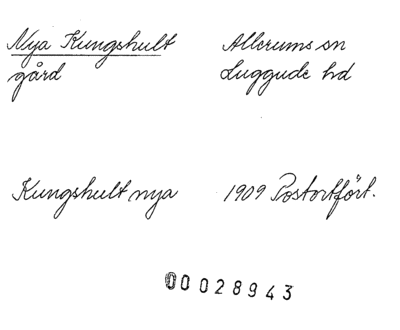 Nya Kungshult Allerums sn
gård Luggude hd
Kungshult nya 1909 Postortfört.
00028943